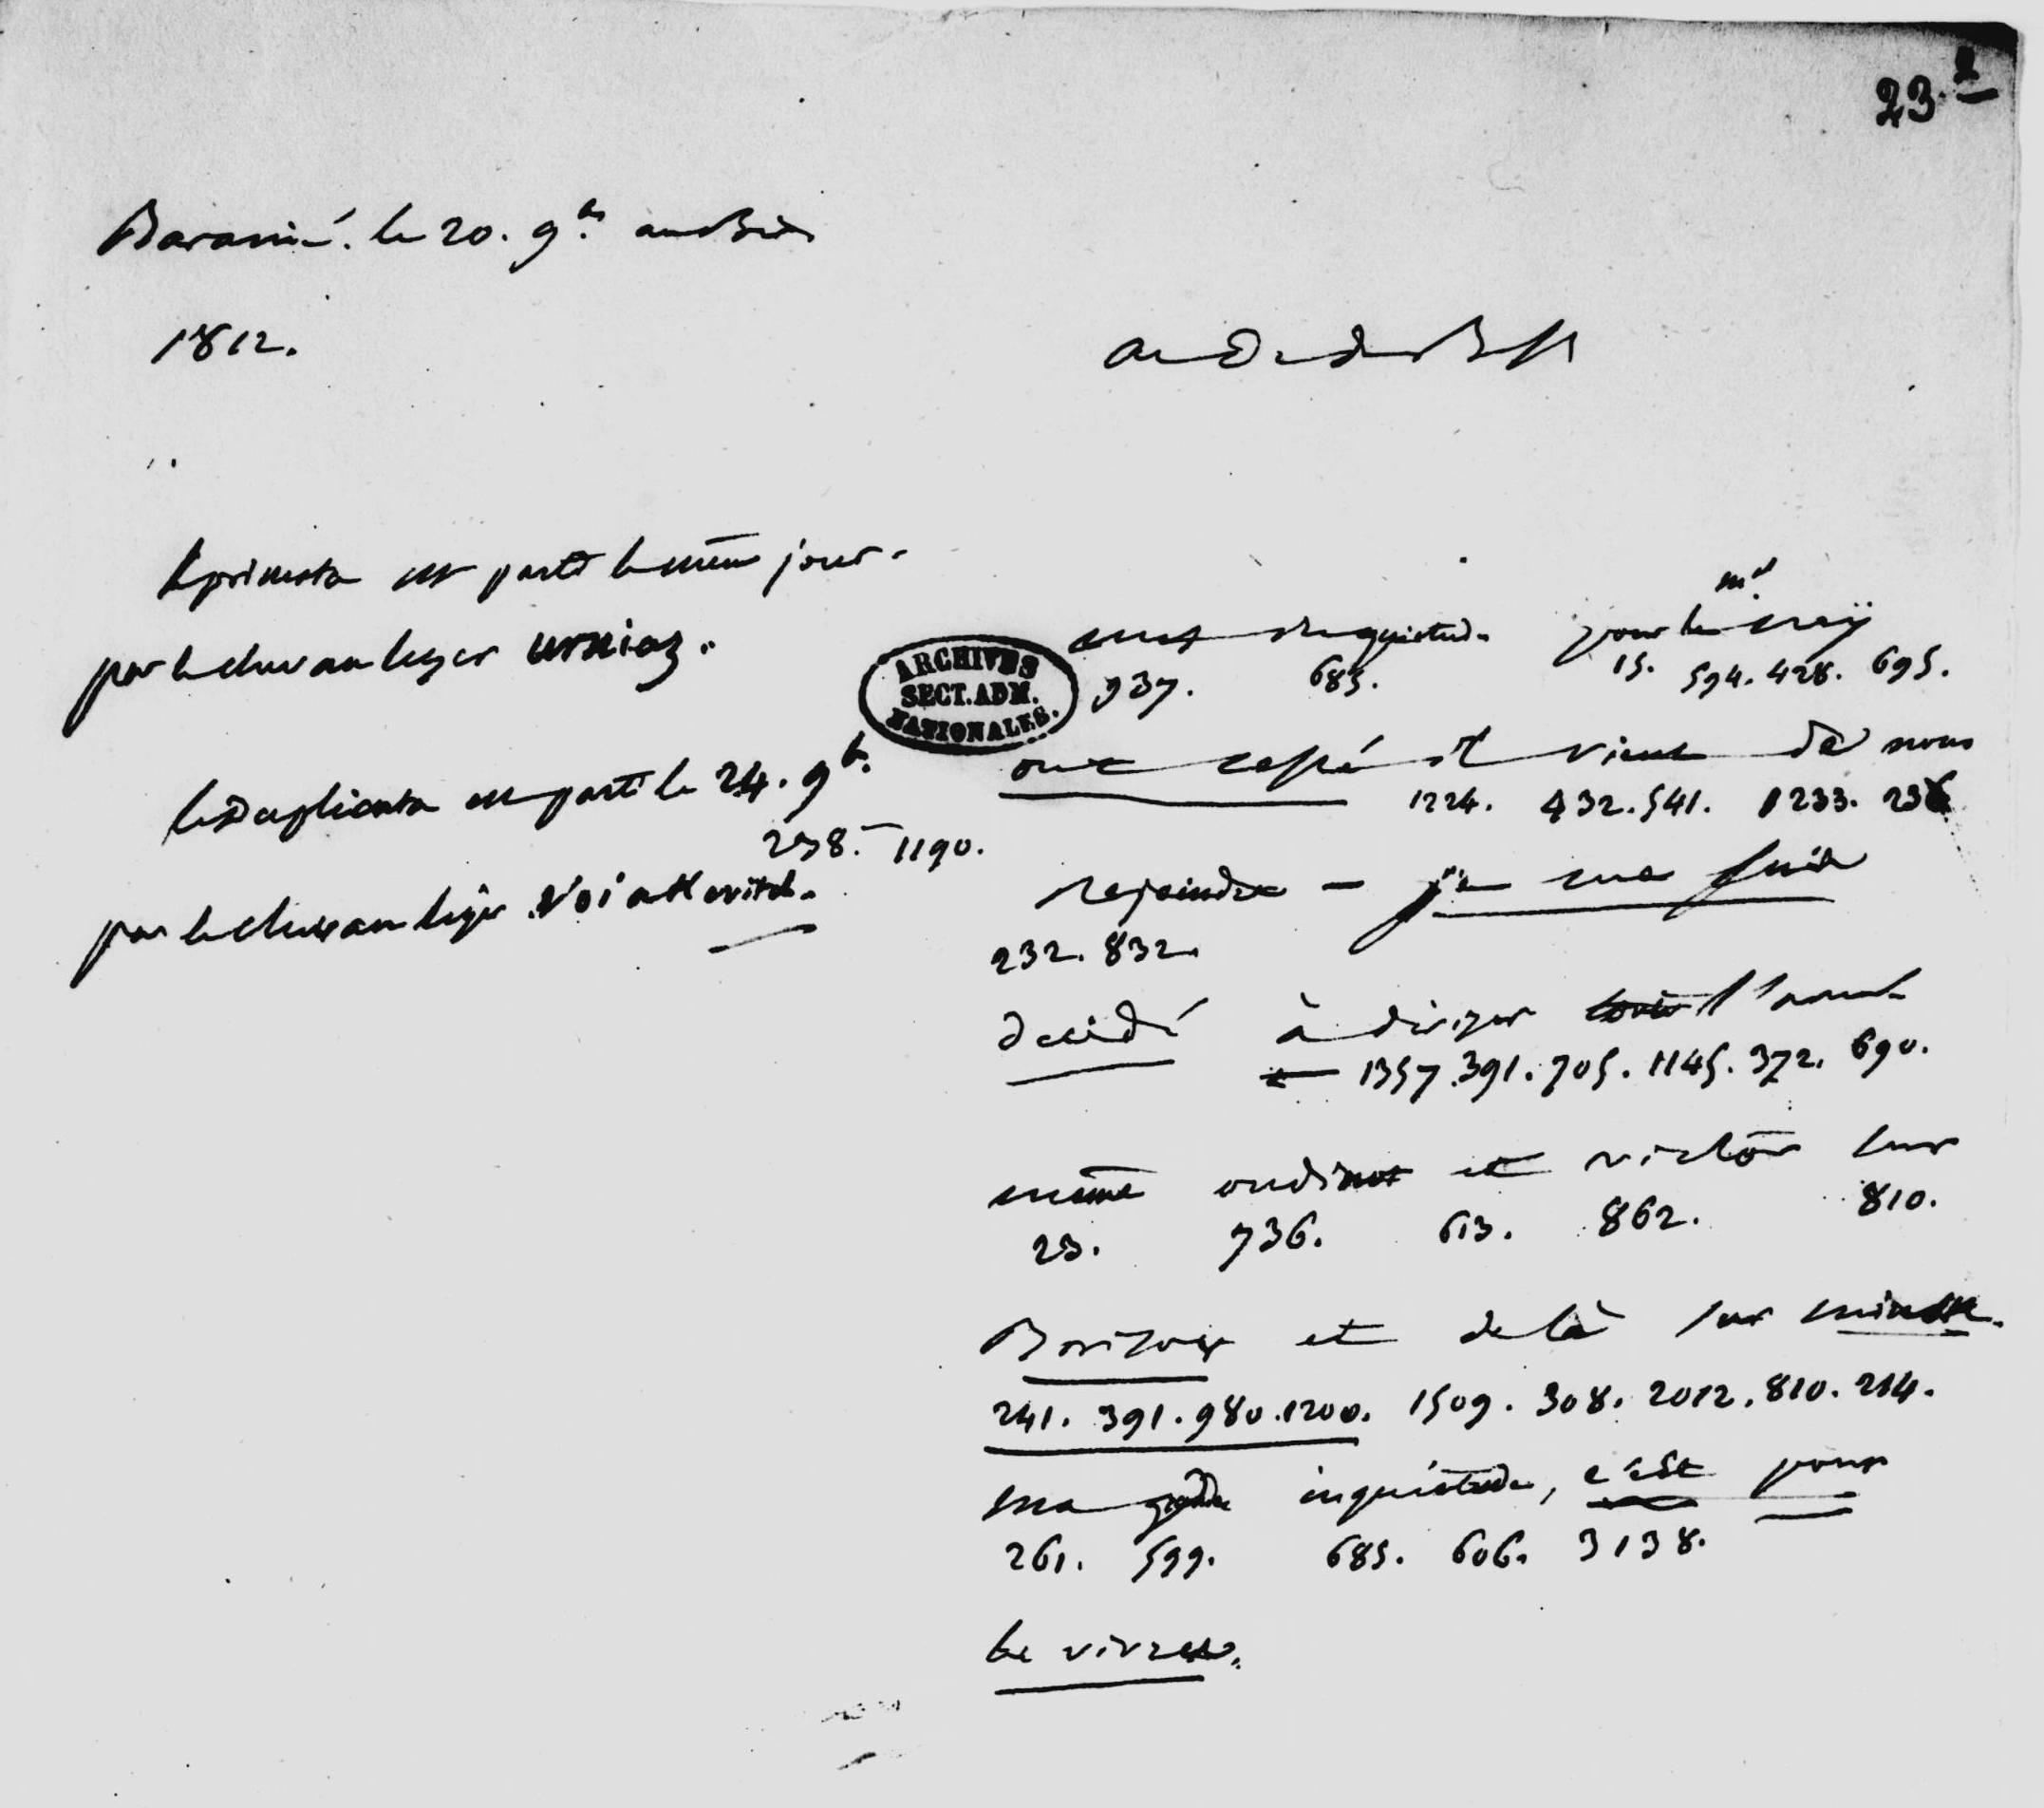 23
Baranui. le 20. 9bre au soir
1812.
au D de Bass
le primata est parti le même jour.
par le chevau leger Urniaz.
le Duplicata est parti le 24. 9b.
238. 1190.
par le chevau leger
ARCHIVES
SECT. ADM.
NATIONALES.
mes inquietudes pour le mal ney
937. 685. 15. 594. 428. 695.
ont cessé il vient de nous
1224. 432. 541. 1233. 236
rejoindre — je me suis
232. 832.
decidé à diriger l'armée
1357. 391. 705. 1145. 372. 690.
même oudinot et victor sur
23. 736. 613. 862. 810.
Borisow et de là sur minsk.
241. 391. 980. 1200. 1509. 308. 2012. 810. 214.
ma grande inquiétude, c'est pour
261. 599. 685. 606. 3138.
le vivres.